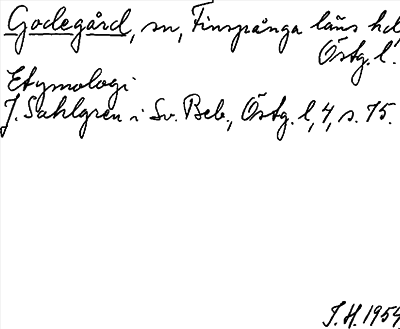 Godegård, sn, Finspånga läns hd,
Östg. l.
Etymologi
J. Sahlgren i Sv. Beb., Östg. l, 4, s. 75.
J. H. 1954